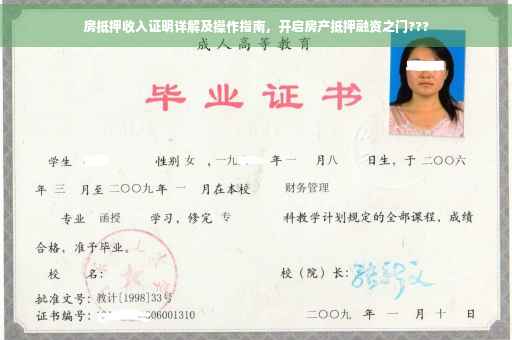 房抵押收入证明详解及操作指南，开启房产抵押融资之门???
成人高等教育
毕业证书
学生 性别 女 ，一九 年 一 月八 日生，于 二〇〇六
年 三 月至 二〇〇九 年 一 月在本校 财务管理
专业 函授 学习，修完 专 科教学计划规定的全部课程，成绩
合格，准予毕业。
校 名： 校（院）长：
批准文号：教计[1998]33号
证书编号： 06001310 二〇〇九 年 一 月 十 日